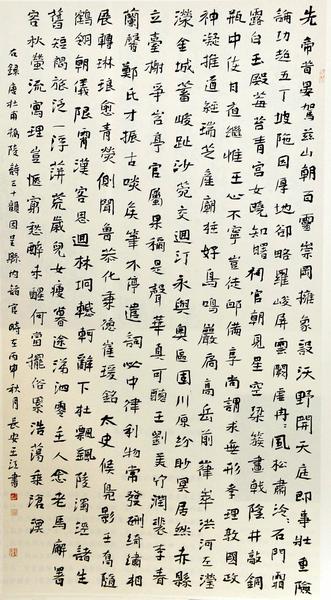 先帝昔晏駕兹山朝百靈崇岡擁象設沃野開天庭即事壯重險
論功超五丁坡陁因厚地却略羅峻屏雲闕虛冉冉風松肅泠泠石門霜
露白玉殿莓苔青宮女晚知曙祠官朝見星空梁簇畫戟陰井敲銅
瓶中使日夜継惟王心不寧豈徒卹備享尚謂求無形孝理敦國政
神凝推道經瑞芝產廟柱好鳥鳴巖扃高岳前嵂崒洪河左瀅
濙金城蓄峻趾沙苑交迴汀永與奧區固川原紛眇冥居然赤縣
立臺榭爭岧亭官屬果稱是聲華真可聽王劉美竹潤裴李春
蘭馨鄭氏才振古啖矦筆不停遣詞必中律利物常發硎綺繡相
展轉琳琅愈青熒側聞魯恭化秉德崔瑗銘太史候鳧影王喬隨
鶴翎朝儀限霄漢客思迴林坰轗軻辭下杜飄颻陵濁涇諸生
舊短褐旅泛一浮萍荒歲兒女瘦暮途涕泗零主人念老馬廨署
容秋螢流寓理豈愜窮愁醉未醒何當擺俗累浩蕩乘滄溟
右錄唐杜甫橋陵詩三十韻因呈縣内諸官時在丙申秋月長安王江書